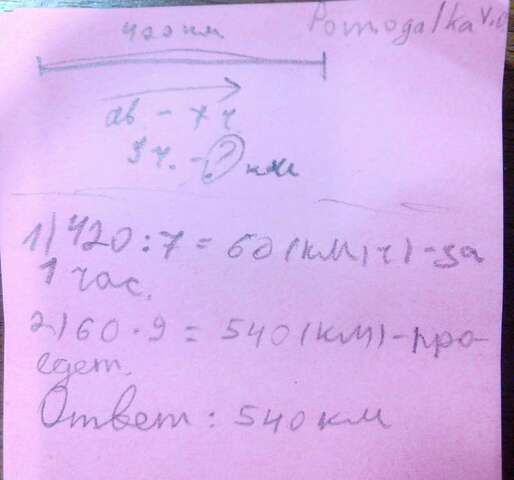 Pomogalka V.1
420 км
ав - 7 ч
9 ч. - ? км
1) 420 : 7 = 60 (км/ч) - за
1 час.
2) 60 · 9 = 540 (км) - про-
едет.
Ответ : 540 км